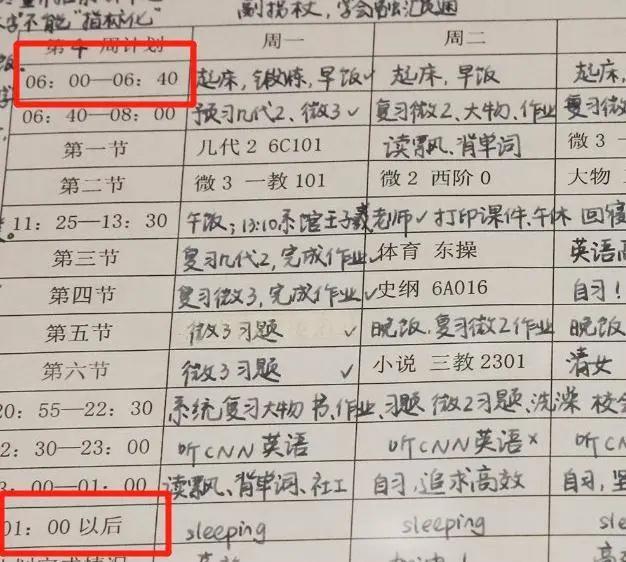 不能"指标化" 副拐杖,学会融汇贯通
周计划 周一 周二
06:00—06:40 起床,锻炼,早饭✓ 起床,早饭 起床,
06:40—08:00 预习几代2、微3✓ 复习微2、大物、作业 复习微
第一节 几代2 6C101 读飘、背单词 微3 一
第二节 微3 一教101 微2 西阶0 大物
11:25—13:30 午饭;13:10系馆王子羲老师✓ 打印课件、午休 回寝
第三节 复习几代2,完成作业✓ 体育 东操 英语
第四节 复习微3,完成作业✓ 史纲 6A016 自习!
第五节 微3习题 ✓ 晚饭.复习微2作业 晚饭
第六节 微3习题 ✓ 小说 三教2301 清女
20:55—22:30 系统复习大物 书、作业、习题 微2习题、洗澡
2:30—23:00 听CNN英语 听CNN英语× 听C
3:00—01:00 读飘、背单词、社工 自习,追求高效 自习,
01:00以后 sleeping sleeping slee